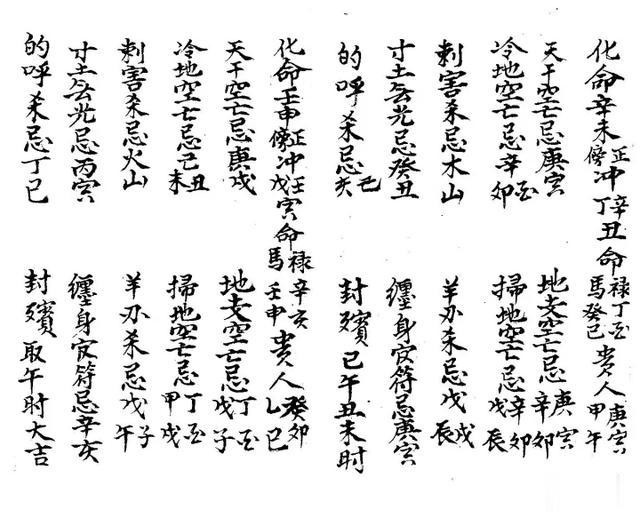 化命辛未正傍冲辛丁丑命祿丁酉馬癸巳貴人庚寅甲午
天干空亡忌庚寅 地支空亡忌庚寅辛卯
冷地空亡忌辛酉卯 掃地空亡忌辛卯戊辰
刺害杀忌木山 羊刃杀忌戊戌辰
寸土无光忌癸丑 纏身官符忌庚寅
的呼杀忌己亥 封殯己午丑未时
化命壬申正傍冲壬戊寅命祿辛亥馬壬申貴人癸卯乙巳
天干空亡忌庚戌 地支空亡忌丁酉戊子
冷地空亡忌己丑未 掃地空亡忌丁酉甲戌
刺害杀忌火山 羊刃杀忌戊子午
寸土无光忌丙寅 纏身官符忌辛亥
的呼杀忌丁巳 封殯取午时大吉